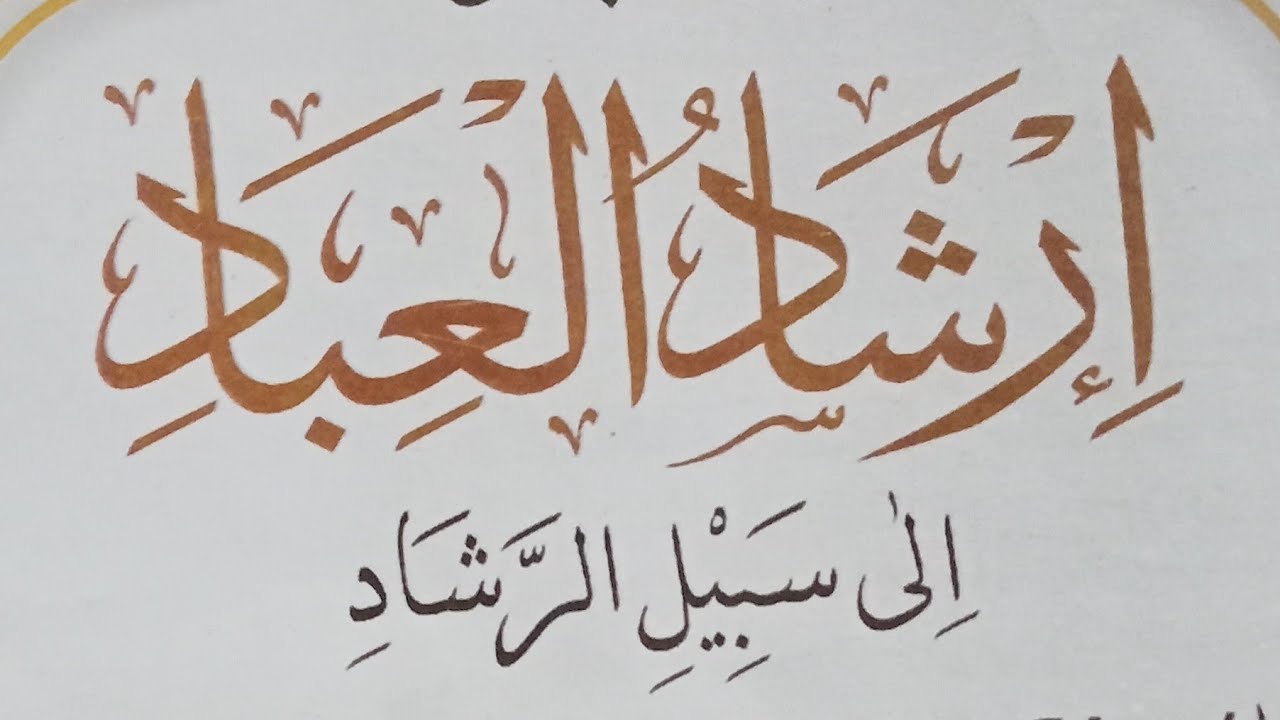 إِرْشَادُ الْعِبَادِ
اِلٰى سَبِيْلِ الرَّشَادِ